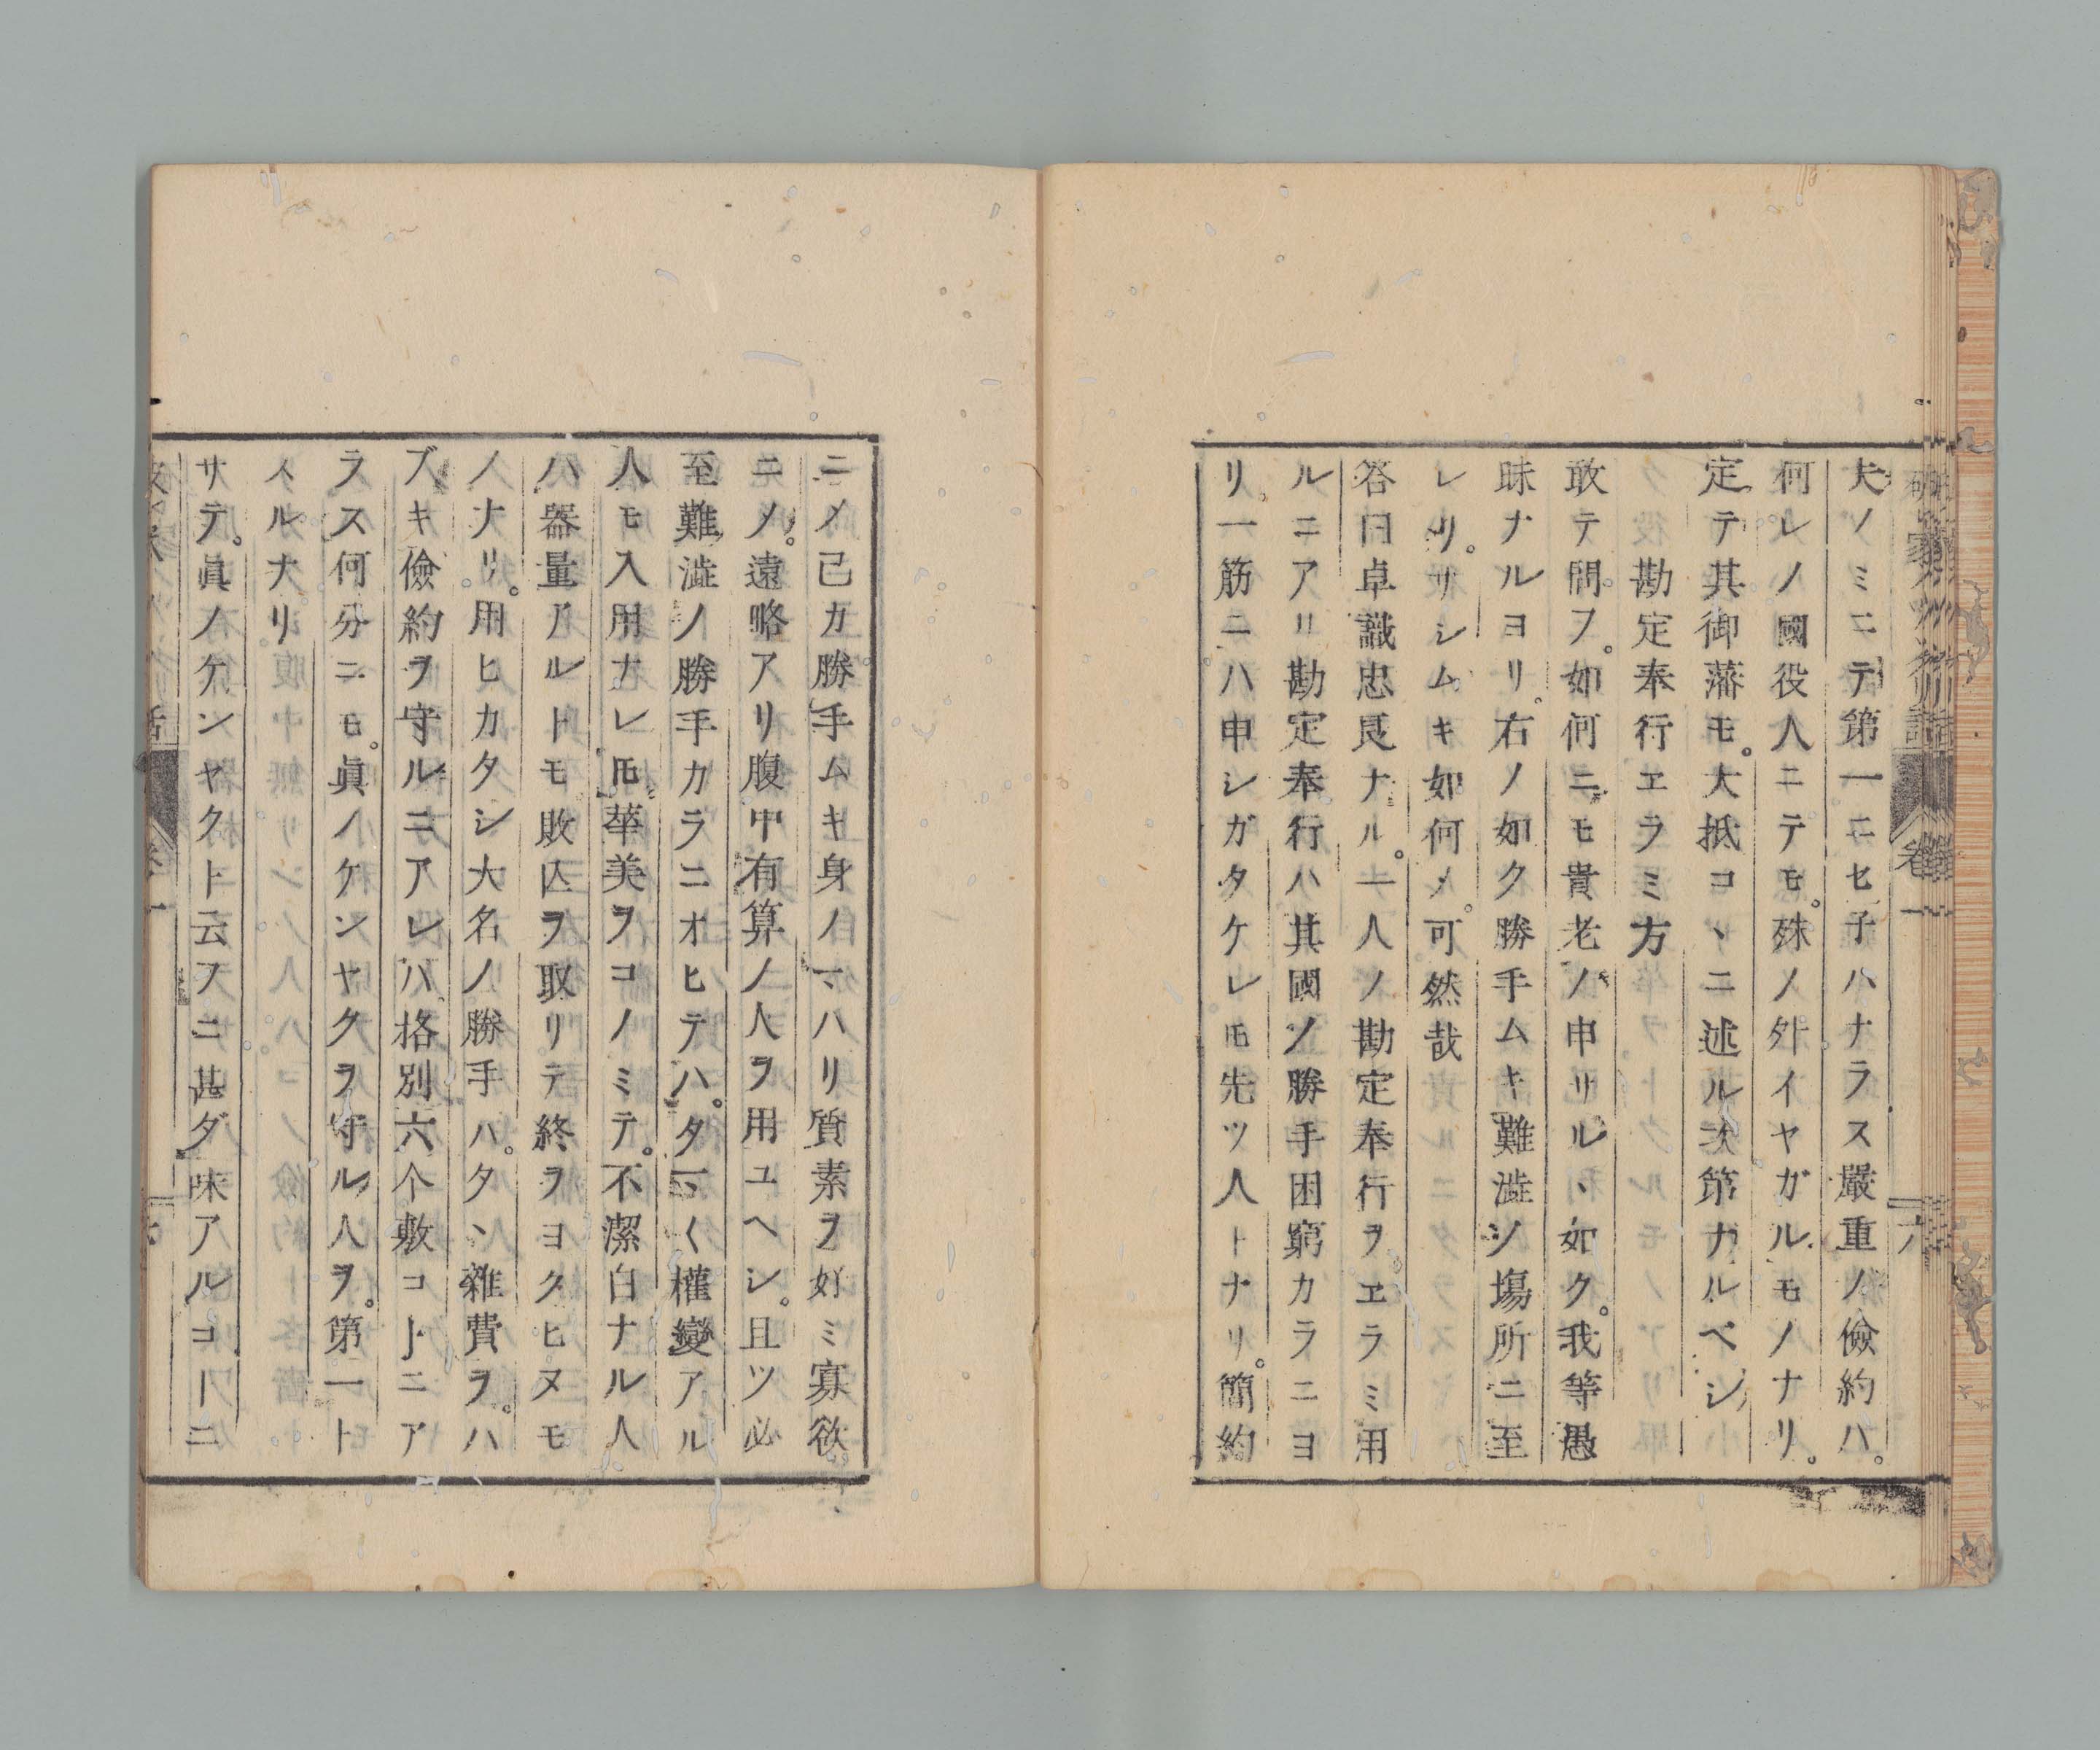 夫ノミニテ第一ニセ子ハナラス嚴重ノ儉約ハ。
何レノ國役人ニテモ。殊ノ外イヤガルモノナリ。
定テ其御藩モ。大抵コヽニ述ル次第ナルベシ
勘定奉行ヱラミ方
敢テ問フ。如何ニモ貴老ノ申サルヽ如ク。我等愚
昧ナルヨリ。右ノ如ク勝手ムキ難澁ノ塲所ニ至
レリ。サシムキ如何〆。可然哉
答曰卓識忠良ナル。一人ノ勘定奉行ヲヱラミ用
ルニアリ勘定奉行ハ其國ノ勝手困窮カラニヨ
リ。一筋ニハ申シガタケレ𪜈先ツ人トナリ。簡約
ニ〆己カ勝手ムキ身ノマハリ質素ヲ好ミ寡欲
ニ〆。遠略アリ腹中有算ノ人ヲ用ユヘシ。且ツ必
至難澁ノ勝手カラニオヒテハ。タマ〱權變アル
人モ入用ナレ𪜈華美ヲコノミテ。不潔白ナル人
ハ器量アルトモ敗亾ヲ取リテ終ヲヨクヒヌモ
ノナリ。用ヒカタシ大名ノ勝手ハ。タヽ雜費ヲ。ハ
ブキ儉約ヲ守ルニアレハ格別六个敷コトニア
ラス何分ニモ。眞ノケンヤクヲ守ル人ヲ。第一ト
スルナリ
サテ。眞ノケンヤクト云スニ甚ダ味アルコーニ
卷一